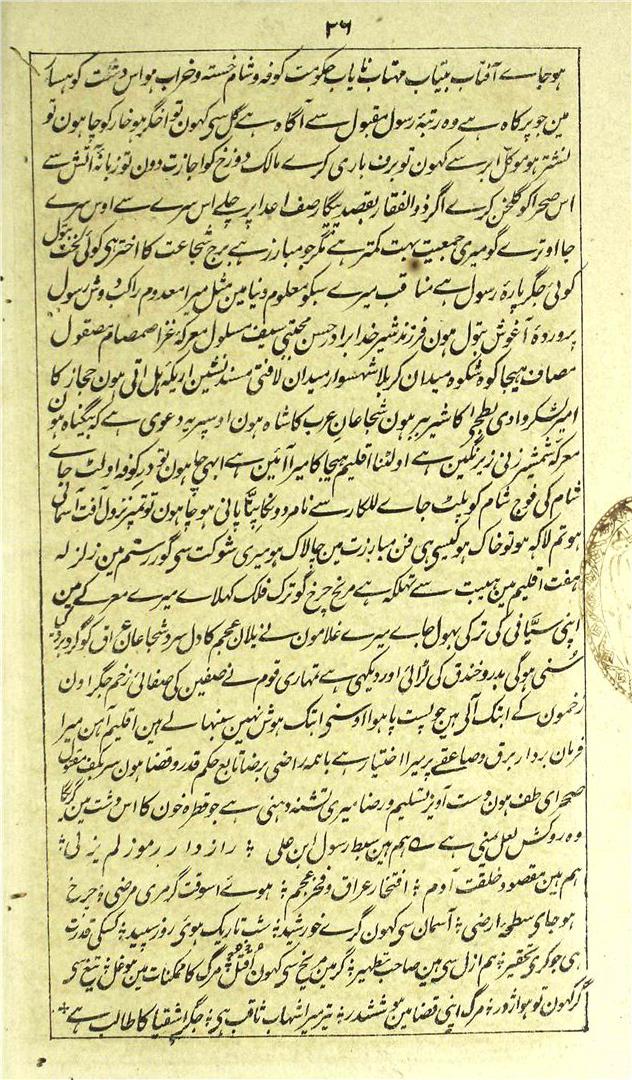 ٢٦
ہوجاے آفتاب بیتاب مہتاب نایاب حکومت کوفہ و شام خستہ و خراب ہو اس دشت کوہسار
مین جو پرکاہ ہے وہ رتبۂ رسول مقبول سے آگاہ ہے گل سی کہون تو اخگر ہو خار کو چاہون تو
نشتر ہو موکل ابر سے کہون تو برف باری کرے مالک دوزخ کو اجازت دون تو زبانۂ آتش سے
اس صحرا کو گلخن کرے اگر ذوالفقار بقصد پیکار صف اعدا پر چلے اس سرے سے اوس سرے
جا اوترے گو میری جمعیت بہت کمتر ہے مگر جو مبارز ہے برج شجاعت کا اختر ہی کوئی لخت بتول
کوئی جگر پارۂ رسول ہے مناقب میرے سبکو معلوم دنیا مین مثل میرا معدوم راکب دوش رسول
پروردۂ آغوش بتول ہون فرزند شیر خدا برادر حسن مجتبی سیف مسلول معرکۂ غزا صمصام مصقول
مصاف ہیجا کوہ شکوہ میدان کربلا شہسوار میدان لافتی مسند نشین اریکۂ ہل اتی ہون حجاز کا
امیر لشکر وادی بطحی کا شیر ببر ہون شجاعان عرب کا شاہ ہون اوسپر یہ دعوی ہے کہ بیگناہ ہون
معرکۂ شمشیر زنی زیر نگین ہے اولٹنا اقلیم ہیجا کا میرا آئین ہے ابہی چاہون تو در کوفہ اولٹ جاے
شام کی فوج شام کو پلٹ جاے للکار سے نامردونکا پتا پانی ہو چاہون تو تمپر نزول آفت آسمانی
ہو تم لاکہہ ہو تو خاک ہو کیسی ہی فن مبارزت مین چالاک ہو میری شوکت سی گور رستم مین زلزلہ
ہفت اقلیم مین ہیبت سے تہلکہ ہے مریخ چرخ گو ترک فلک کہلاے میرے معرکے مین
اپنی سیّانی کی ترکی بہول جاے میرے غلامون نے یلان عجم کا دل سرد شجاعان عراق کو گرد برد کیا
سُنی ہوگی بدر و خندق کی لڑائی اور دیکہی ہے تمہاری قوم نے صفین کی صفائی زخم جگر اون
زخمون کے ابتک آلی ہین جو پست پا ہوا اوسنی ابتک ہوش نہین سنبہالے ہین اقلیم آہن میرا
فرمان بردار برق و صاعقے پر میرا اختیار ہے بااینہمہ راضی برضا تابع حکم قدر و قضا ہون سر بکف مقتول
صحرای طف ہون دست آویز تسلیم و رضا میری تشنہ دہنی ہے جو قطرہ خون کا اس دشت مین گریگا
وہ روکش لعل یمنی ہے ؎ ہم ہین سبط رسول ابن علی ؛ رازدار رموز لم یزلی ؛
ہم ہین مقصود خلقت آدم ؛ افتخار عراق و فخر عجم ؛ ہوے اسوقت گر مری مرضی ؛ چرخ
ہو جای سطحۂ ارضی ؛ آسمان سی کہون گرے خورشید ؛ شب تاریک ہوی روز سپید ؛ کسکی قدرت
ہی جو کری تحقیر ؛ ہم ازل سی ہین صاحب تطہیر ؛ گر مین مریخ سی کہون اُقتل ؛ مرگ کا ممکنات مین ہو غل ؛ تیغ سی
گر کہون تو ہو اژدر ؛ مرگ اپنی قضا مین ہو ششدر ؛ تیر میرا شہاب ثاقب ہی ؛ جگر اشقیا کا طالب ہے